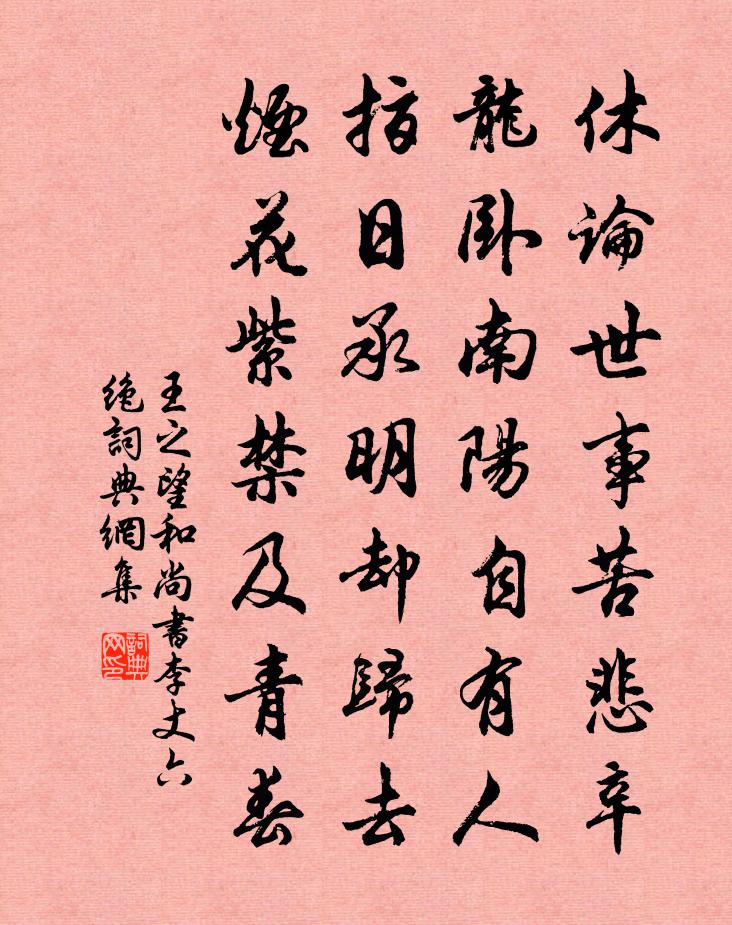 休論世事苦悲辛
龍卧南陽自有人
指日承明却歸去
煙花紫禁及青春
王之望和尚書李丈六
絶詞典網集
詞典
网印